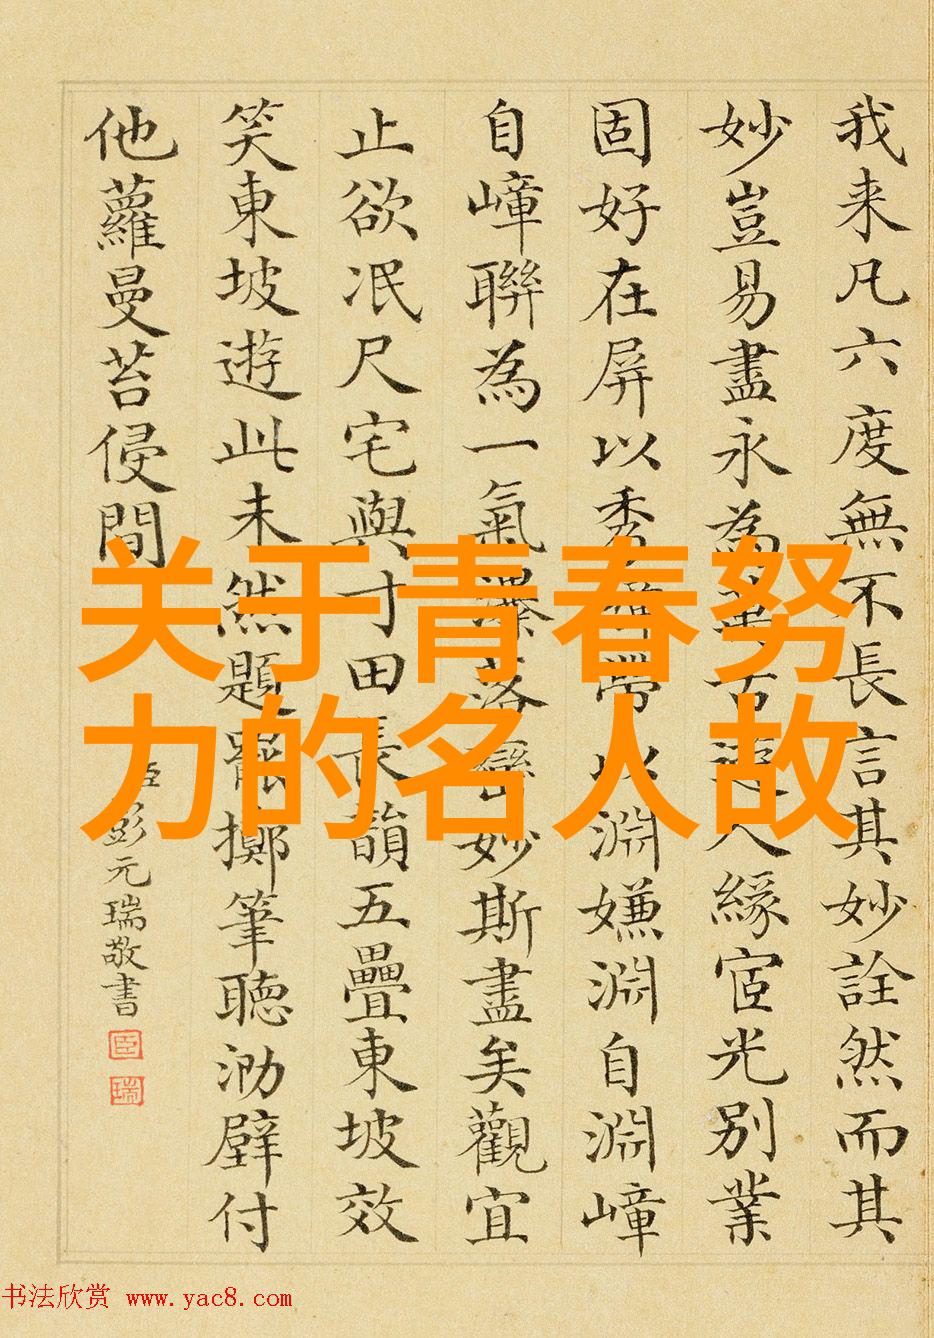 我来凡六度無不長言其妙詮然而其
妙豈易盡永為古人緣宧光別業
固好在屏以秀帶以淵嫌淵自淵嶂
自嶂聯為一氣瀑落妙斯盡矣觀宜
止欲泯尺宅與寸田長韻五疊東坡效
笑東坡遊此未然題罷擲筆聽泐壁付
他蘿曼苔侵間
臣彭元瑞敬書
臣
瑞
关于青春努
力的名人故
书法欣赏 www.yac8.com